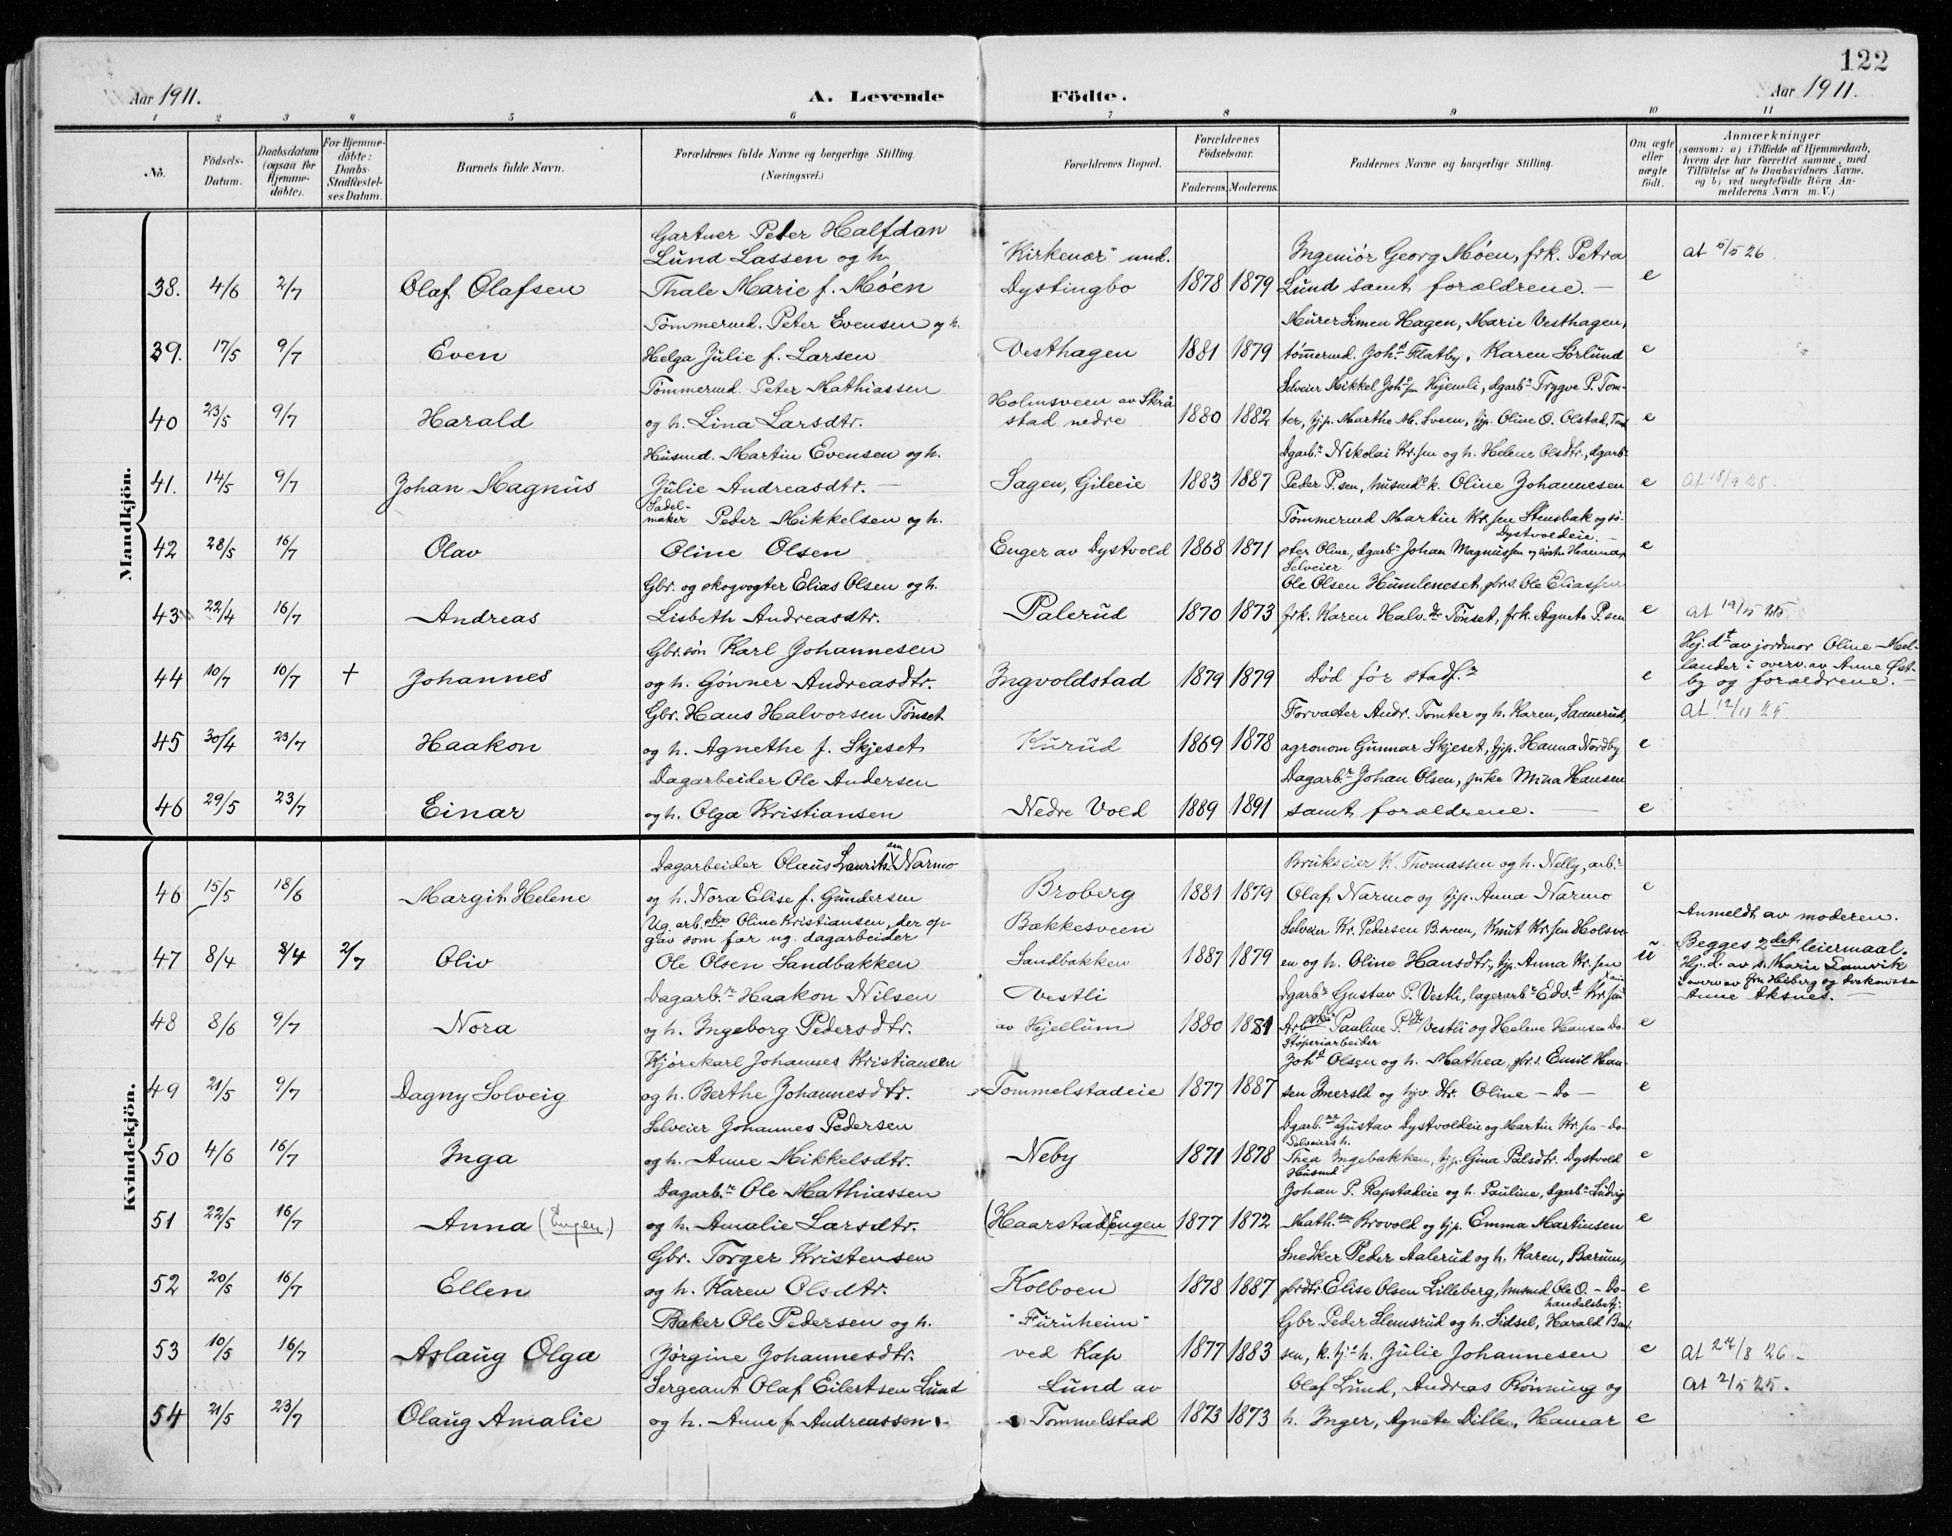 122
Aar 1911.
A. Levende Födte.
Aar 1911.
1 2 3 4 5 6 7 8 9 10 11
No.
Födsels-Datum.
Daabsdatum (ogsaa for Hjemme-döbte).
For Hjemme-döbte: Daabs-Stadfæstel-ses Datum.
Barnets fulde Navn.
Forældrenes fulde Navne og borgerlige Stilling.
(Næringsvei.)
Forældrenes Bopæl.
Forældrenes Födselsaar.
Faderens. Moderens.
Faddernes Navne og borgerlige Stilling.
Om ægte eller uægte födt.
Anmærkninger
(saasom: a) i Tilfælde af Hjemmedaab,
hvem der har forrettet samme, med
Tilföielse af to Daabsvidners Navne.
og b) ved uægtefödte Börn An-
melderens Navn m. V.)
Mandkjön.
Gartner Peter Halfdan
Lund Lassen og h. "Kirkenær" und. Ingeniör Georg Møen, frk. Petra at 5/5 26
38. 4/6 2/7 Olaf Olafsen Thale Marie f. Møen Dystingbo 1878 1879 Lund samt forældrene. — e
Tømmermd. Peter Evensen og h. Murer Simen Hagen, Marie Vesthagen,
39. 17/5 9/7 Even Helga Julie f. Larsen Vesthagen 1881 1879 tømmermd. Johs Flatby, Karen Sørlund e
Tømmermd. Peter Mathiassen Holmsveen av Skrå- Selveier Mikkel Johssen Hjemli, dgarbr Trygve P. Tom-
40 23/5 9/7 Harald og h. Lina Larsdtr. stad nedre 1880 1882 ter, tjp. Marthe M. Sveen, tjp. Oline O. Olstad, e
Husmd. Martin Evensen og h. Dgarbr Nikolai Kr.sen og h. Helene Olsdtr., dgarbr
41. 14/5 9/7 Johan Magnus Julie Andreasdtr. — Sagen, Gileeie 1883 1887 Peder P.sen, husmds k. Oline Johannesen e at 18/9 28.
Sadel-
maker Peder Mikkelsen og h. Tømmermd Martin Kr.sen Stensbak og sø-
Dystvoldeie. —
42 28/5 16/7 Olav Oline Olsen Enger av Dystvold 1868 1871 ster Oline, dgarbr Johan Magnussen og Hanna e
Selveier
Gbr. og skogvogter Elias Olsen og h. Ole Olsen Humleneset, gbrs. Ole Eliassen
43 22/4 16/7 Andreas Lisbeth Andreasdtr. Palerud 1870 1873 frk. Karen Halv.dr Tønset, frk. Agnete P.sen e at 19/5 25
Gbr.søn Karl Johannesen Hj.dt av jordmor Oline Mel-
44 10/7 10/7 + Johannes og h. Gønner Andreasdtr. Ingvoldstad 1879 1879 Død før stadf.n e lander i overv. av Anne Øst-
by og forældrene. —
Gbr. Hans Halvorsen Tønset Forvalter Andr. Tomter og h. Karen, Saanerud, at 12/11 25
45 30/4 23/7 Haakon og h. Agnethe f. Skjeset Kurud 1869 1878 agronom Gunnar Skjeset, tjp. Hanna Nordby e
Dagarbeider Ole Andersen Dagarb.r Johan Olsen, pike Mina Hansen
46 29/5 23/7 Einar og h. Olga Kristiansen Nedre Vold 1889 1891 samt forældrene. — e
Kvindekjön.
Dagarbeider Olaus Lauritssen Narmo Brukseier K. Thomassen og h. Nelly, arb.r
46 15/5 18/6 Margit Helene og h. Nora Elise f. Gundersen Broberg 1881 1879 Olaf Narmo og tjp. Anna Narmo e
Ug. arb.ske Oline Kristiansen, der op- Bækkesveen Selveier Kr. Pedersen B.sveen, Knut Kr.sen Holsve- Anmeldt av moderen.
gav som far ug. dagarbeider
47 8/4 8/4 2/7 Oliv Ole Olsen Sandbakken Sandbakken 1887 1879 en og h. Oline Hansdtr., tjp. Anna Kr.sen u Begges 2det leiermaal.
Hj.d. av s. Marie Lamvik
i overv av fru Heiberg og
Anne Aksnes. —
Dagarb.r Haakon Nilsen Vestli Dgarbr Gustav P. Vestli, lagerarb.r Edv.t Kr.sen
48 8/6 9/7 Nora og h. Ingeborg Pedersdtr. av Hjellum 1880 1881 Arb.ske Pauline P.dtr Vestli og Helene Hansen Do- e
Støperiarbeider
Kjørekarl Johannes Kristiansen Johs Olsen og h. Mathea, gbr.s. Emil Han-
49 21/5 9/7 Dagny Solveig og h. Berthe Johannesdtr. Tommelstadeie 1877 1887 sen Imerslt og tjp. Kr. Oline — Do — e
Selveier Johannes Pedersen Dgarb.ne Gustav Dystvoldeie og Martin Kr.sen — Do-
Selveiers h.
50 4/6 16/7 Inga og h. Anne Mikkelsdtr. Neby 1871 1878 Thea Ingebakken, tjp. Gina Palsdtr. Dystvold e
Husmd
Dagarb.r Ole Mathiassen Johan P. Rapstadeie og h. Pauline, dgarb.r Ludvig
51 22/5 16/7 Anna (Engen) og h. Amalie Larsdtr. (Haarstad) Engen 1877 1872 Math.sen Brovold og tjp. Emma Martinsen e
Gbr. Torger Kristensen Snedker Peder Aalerud og h. Karen, Bærum,
52 20/5 16/7 Ellen og h. Karen Olsdtr. Kolboen 1878 1887 gbrdtr. Elise Olsen Lilleberg, husmd Ole O. — Do- e
handelsbetj.
Baker Ole Pedersen og h. "Furuheim" Gbr. Peder Slemsrud og h. Sidsel, Harald
53 10/5 16/7 Aslaug Olga Jørgine Johannesdtr. ved Kap 1877 1883 sen, k. tj. h. Julie Johannesen e at 24/8 26.
Sergeant Olaf Eilertsen Lund Lund av Olaf Lund, Andreas Rønning og at 2/5 25.
54 21/5 23/7 Olaug Amalie og h. Anne f. Andreassen. Tommelstad 1873 1873 h. Inger, Agnete Dille, Hamar e